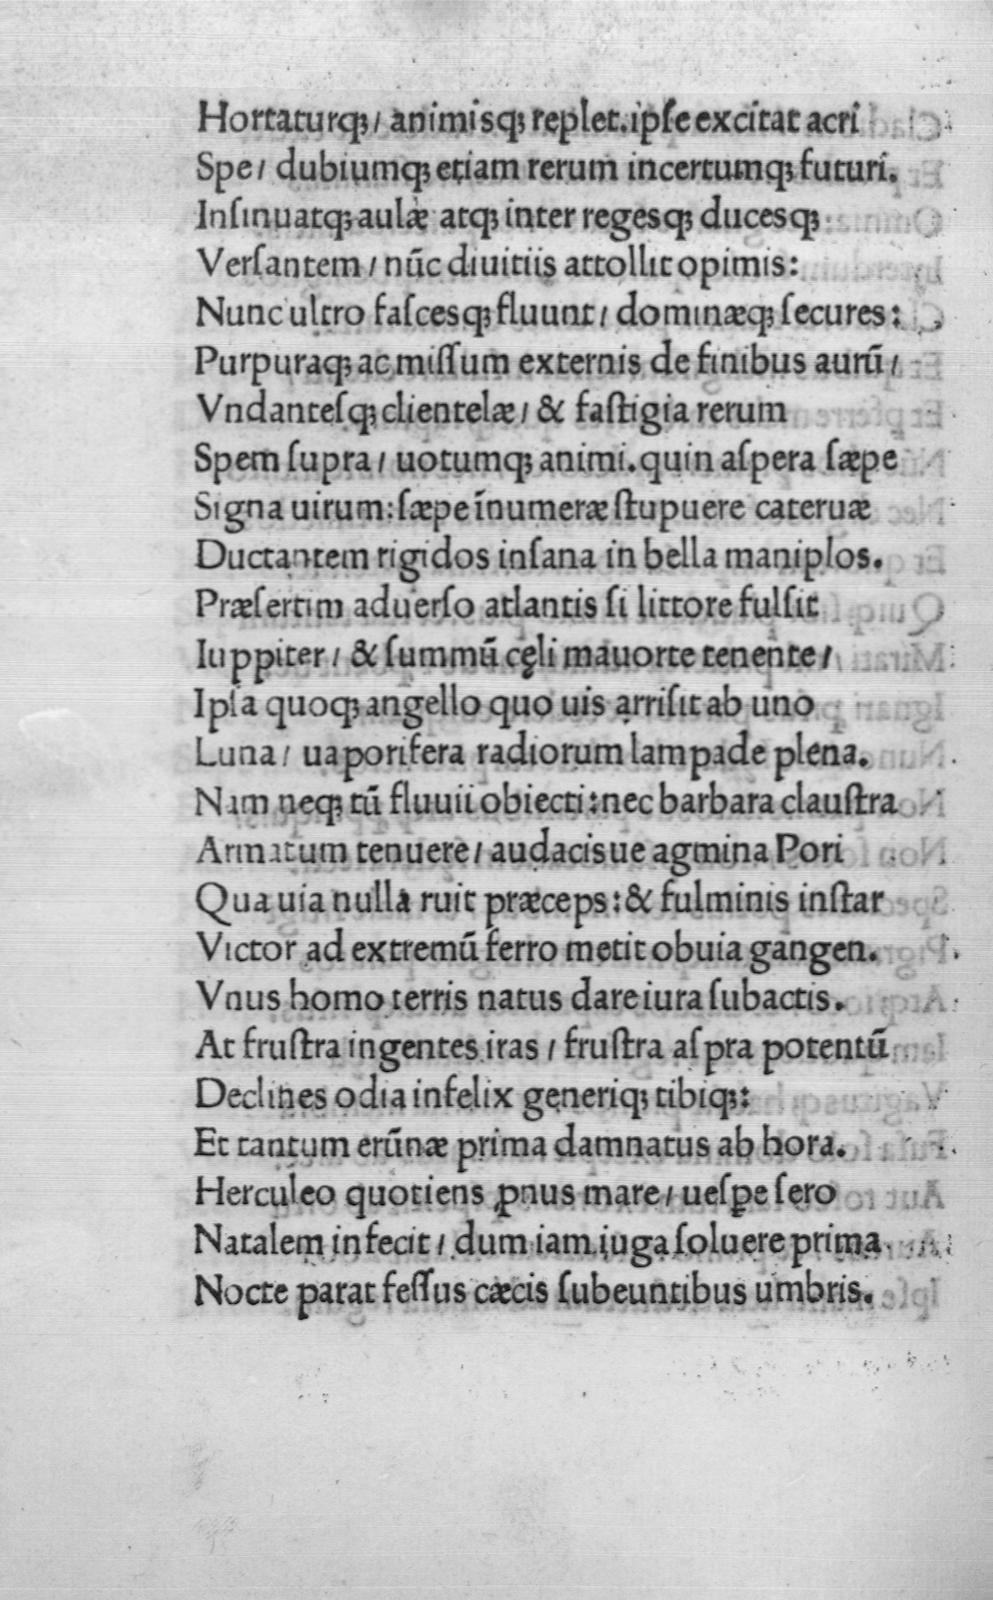 Hortaturqꝫ/ animisqꝫ replet.ipſe excitat acri
Spe/ dubiumqꝫ etiam rerum incertumqꝫ futuri.
Inſinuatqꝫ aulæ atqꝫ inter regesqꝫ ducesqꝫ
Verſantem/ nūc diuitiis attollit opimis:
Nunc ultro faſcesqꝫ fluunt/ dominæqꝫ ſecures:
Purpuraqꝫ ac miſſum externis de finibus aurū/
Vndanteſqꝫ clientelæ/ & faſtigia rerum
Spem ſupra/ uotumqꝫ animi.quin aſpera ſæpe
Signa uirum:ſæpe īnumeræ ſtupuere cateruæ
Ductantem rigidos inſana in bella maniplos.
Præſertim aduerſo atlantis ſi littore fulſit
Iuppiter/ & ſummū cęli mauorte tenente/
Ipſa quoqꝫ angello quo uis arriſit ab uno
Luna/ uaporifera radiorum lampade plena.
Nam neqꝫ tū fluuii obiecti:nec barbara clauſtra
Armatum tenuere/ audacisue agmina Pori
Qua uia nulla ruit præceps:& fulminis inſtar
Victor ad extremū ferro metit obuia gangen.
Vnus homo terris natus dare iura ſubactis.
At fruſtra ingentes iras/ fruſtra aſpra potentū
Declines odia infelix generiqꝫ tibiqꝫ:
Et tantum erūnæ prima damnatus ab hora.
Herculeo quotiens ꝓnus mare/ ueſꝑe ſero
Natalem infecit/ dum iam iuga ſoluere prima
Nocte parat feſſus cæcis ſubeuntibus umbris.